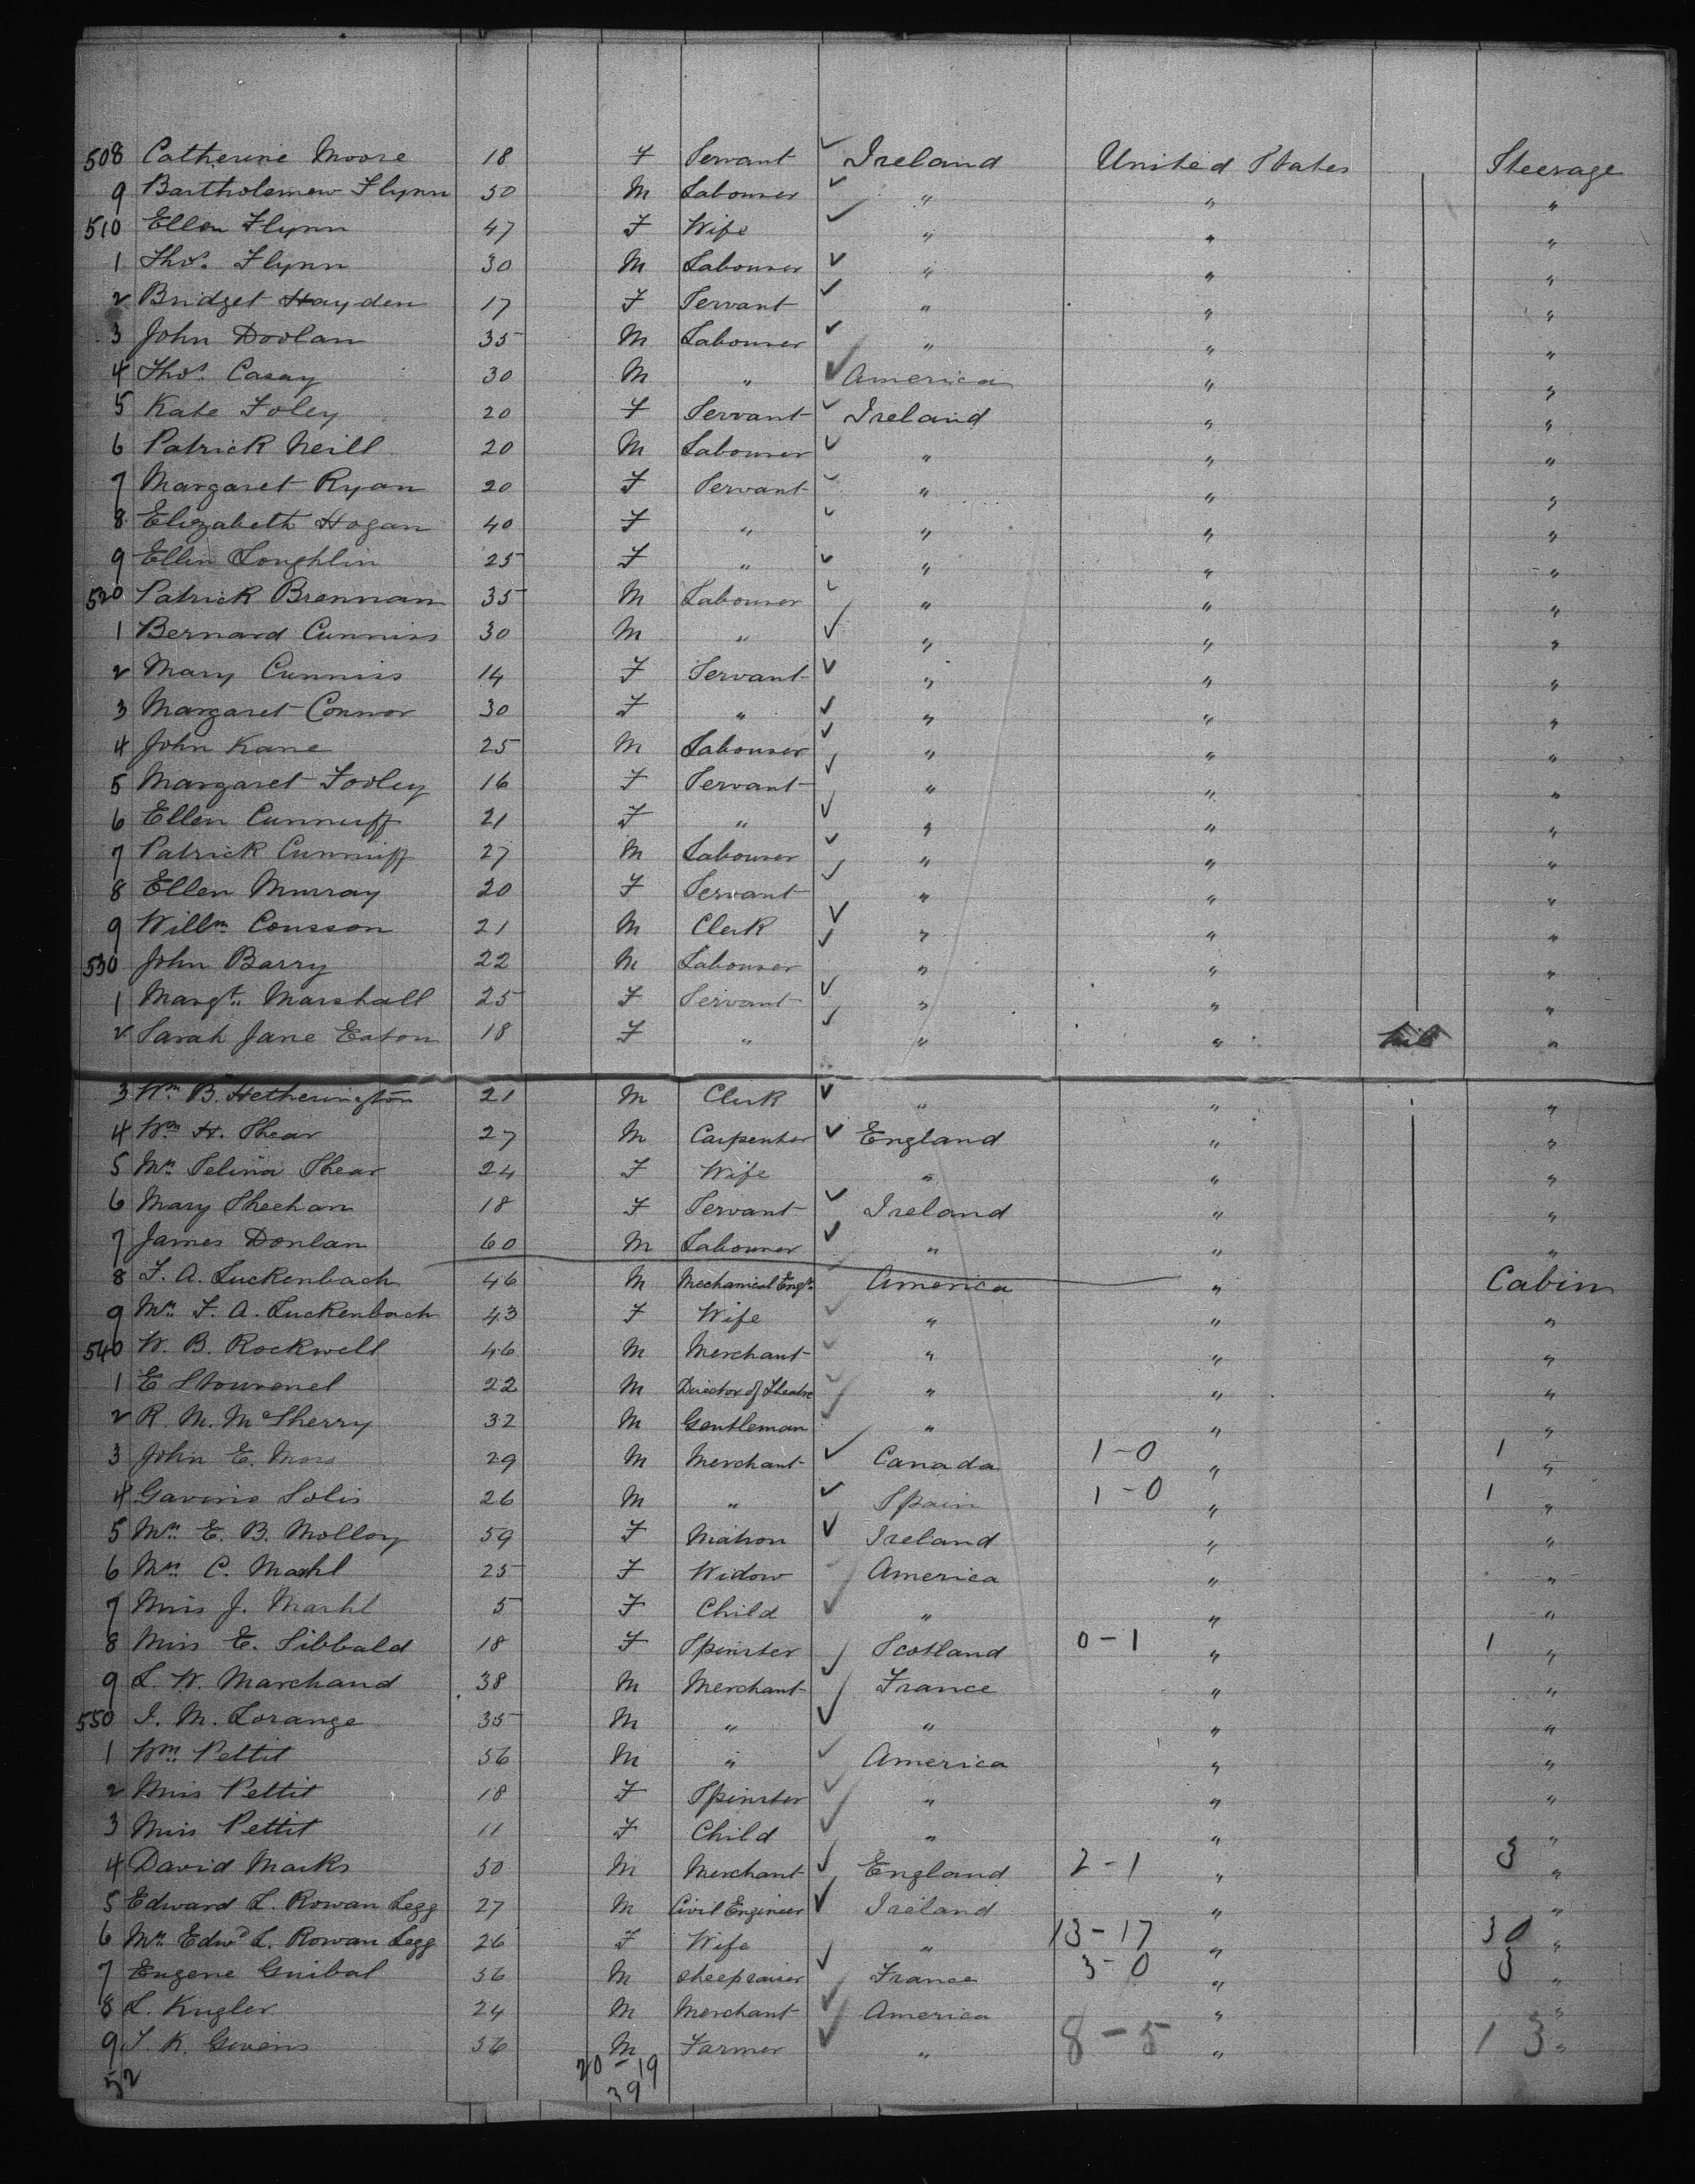 508 Catherine Moore 18 F Servant ✓ Ireland United States Steerage
9 Bartholemew Flynn 50 M Labourer ✓ " " "
510 Ellen Flynn 47 F Wife ✓ " " "
1 Thos. Flynn 30 M Labourer ✓ " " "
2 Bridget Hayden 17 F Servant ✓ " " "
3 John Doolan 35 M Labourer ✓ " " "
4 Thos. Casay 30 M " ✓ America " "
5 Kate Foley 20 F Servant ✓ Ireland " "
6 Patrick Neill 20 M Labourer ✓ " " "
7 Margaret Ryan 20 F Servant ✓ " " "
8 Elizabeth Hogan 40 F " ✓ " " "
9 Ellen Loughlin 25 F " ✓ " " "
520 Patrick Brennan 35 M Labourer ✓ " " "
1 Bernard Cunniss 30 M " ✓ " " "
2 Mary Cunniss 14 F Servant ✓ " " "
3 Margaret Connor 30 F " ✓ " " "
4 John Kane 25 M Labourer ✓ " " "
5 Margaret Fooley 16 F Servant ✓ " " "
6 Ellen Cunniff 21 F " ✓ " " "
7 Patrick Cunniff 27 M Labourer ✓ " " "
8 Ellen Murray 20 F Servant ✓ " " "
9 Willm. Cousson 21 M Clerk ✓ " " "
530 John Barry 22 M Labourer ✓ " " "
1 Margt. Marshall 25 F Servant ✓ " " "
2 Sarah Jane Eaton 18 F " ✓ " " "
3 Wm. B. Hetherington 21 M Clerk ✓ " " "
4 Wm. H. Shear 27 M Carpenter ✓ England " "
5 Mrs. Selina Shear 24 F Wife " " "
6 Mary Sheehan 18 F Servant ✓ Ireland " "
7 James Donlan 60 M Labourer ✓ " " "
8 F. A. Luckenbach 46 M Mechanical Engr. ✓ America " Cabin
9 Mrs. F. A. Luckenbach 43 F Wife ✓ " " "
540 W. B. Rockwell 46 M Merchant ✓ " " "
1 E 22 M Director of Theatre ✓ " " "
2 R. M. McSherry 32 M Gentleman ✓ " " "
3 John E. Moss 29 M Merchant ✓ Canada 1-0 " 1 "
4 Gavino Solis 26 M " ✓ Spain 1-0 " 1 "
5 Mrs. E. B. Molloy 59 F Matron ✓ Ireland " "
6 Mrs. C. 25 F Widow ✓ America " "
7 Miss J. 5 F Child ✓ " " "
8 Miss E. Sibbald 18 F Spinster ✓ Scotland 0-1 " 1 "
9 L. W. Marchand 38 M Merchant ✓ France " "
550 J. M. Lorange 35 M " ✓ " " "
1 Wm. Pettit 56 M " ✓ America " "
2 Miss Pettit 18 F Spinster ✓ " " "
3 Miss Pettit 11 F Child ✓ " " "
4 David Marks 50 M Merchant ✓ England 2-1 " 3 "
5 Edward L. Rowan Legg 27 M Civil Engineer ✓ Ireland " "
6 Mrs. Edwd. L. Rowan Legg 26 F Wife " 13-17 " 30 "
7 Eugene Guibal 36 M Sheepraiser ✓ France 3-0 " 3 "
8 L. Kugler 24 M Merchant ✓ America " "
9 Givens 56 M Farmer ✓ " 8-5 " 13 "
52 20-19
39